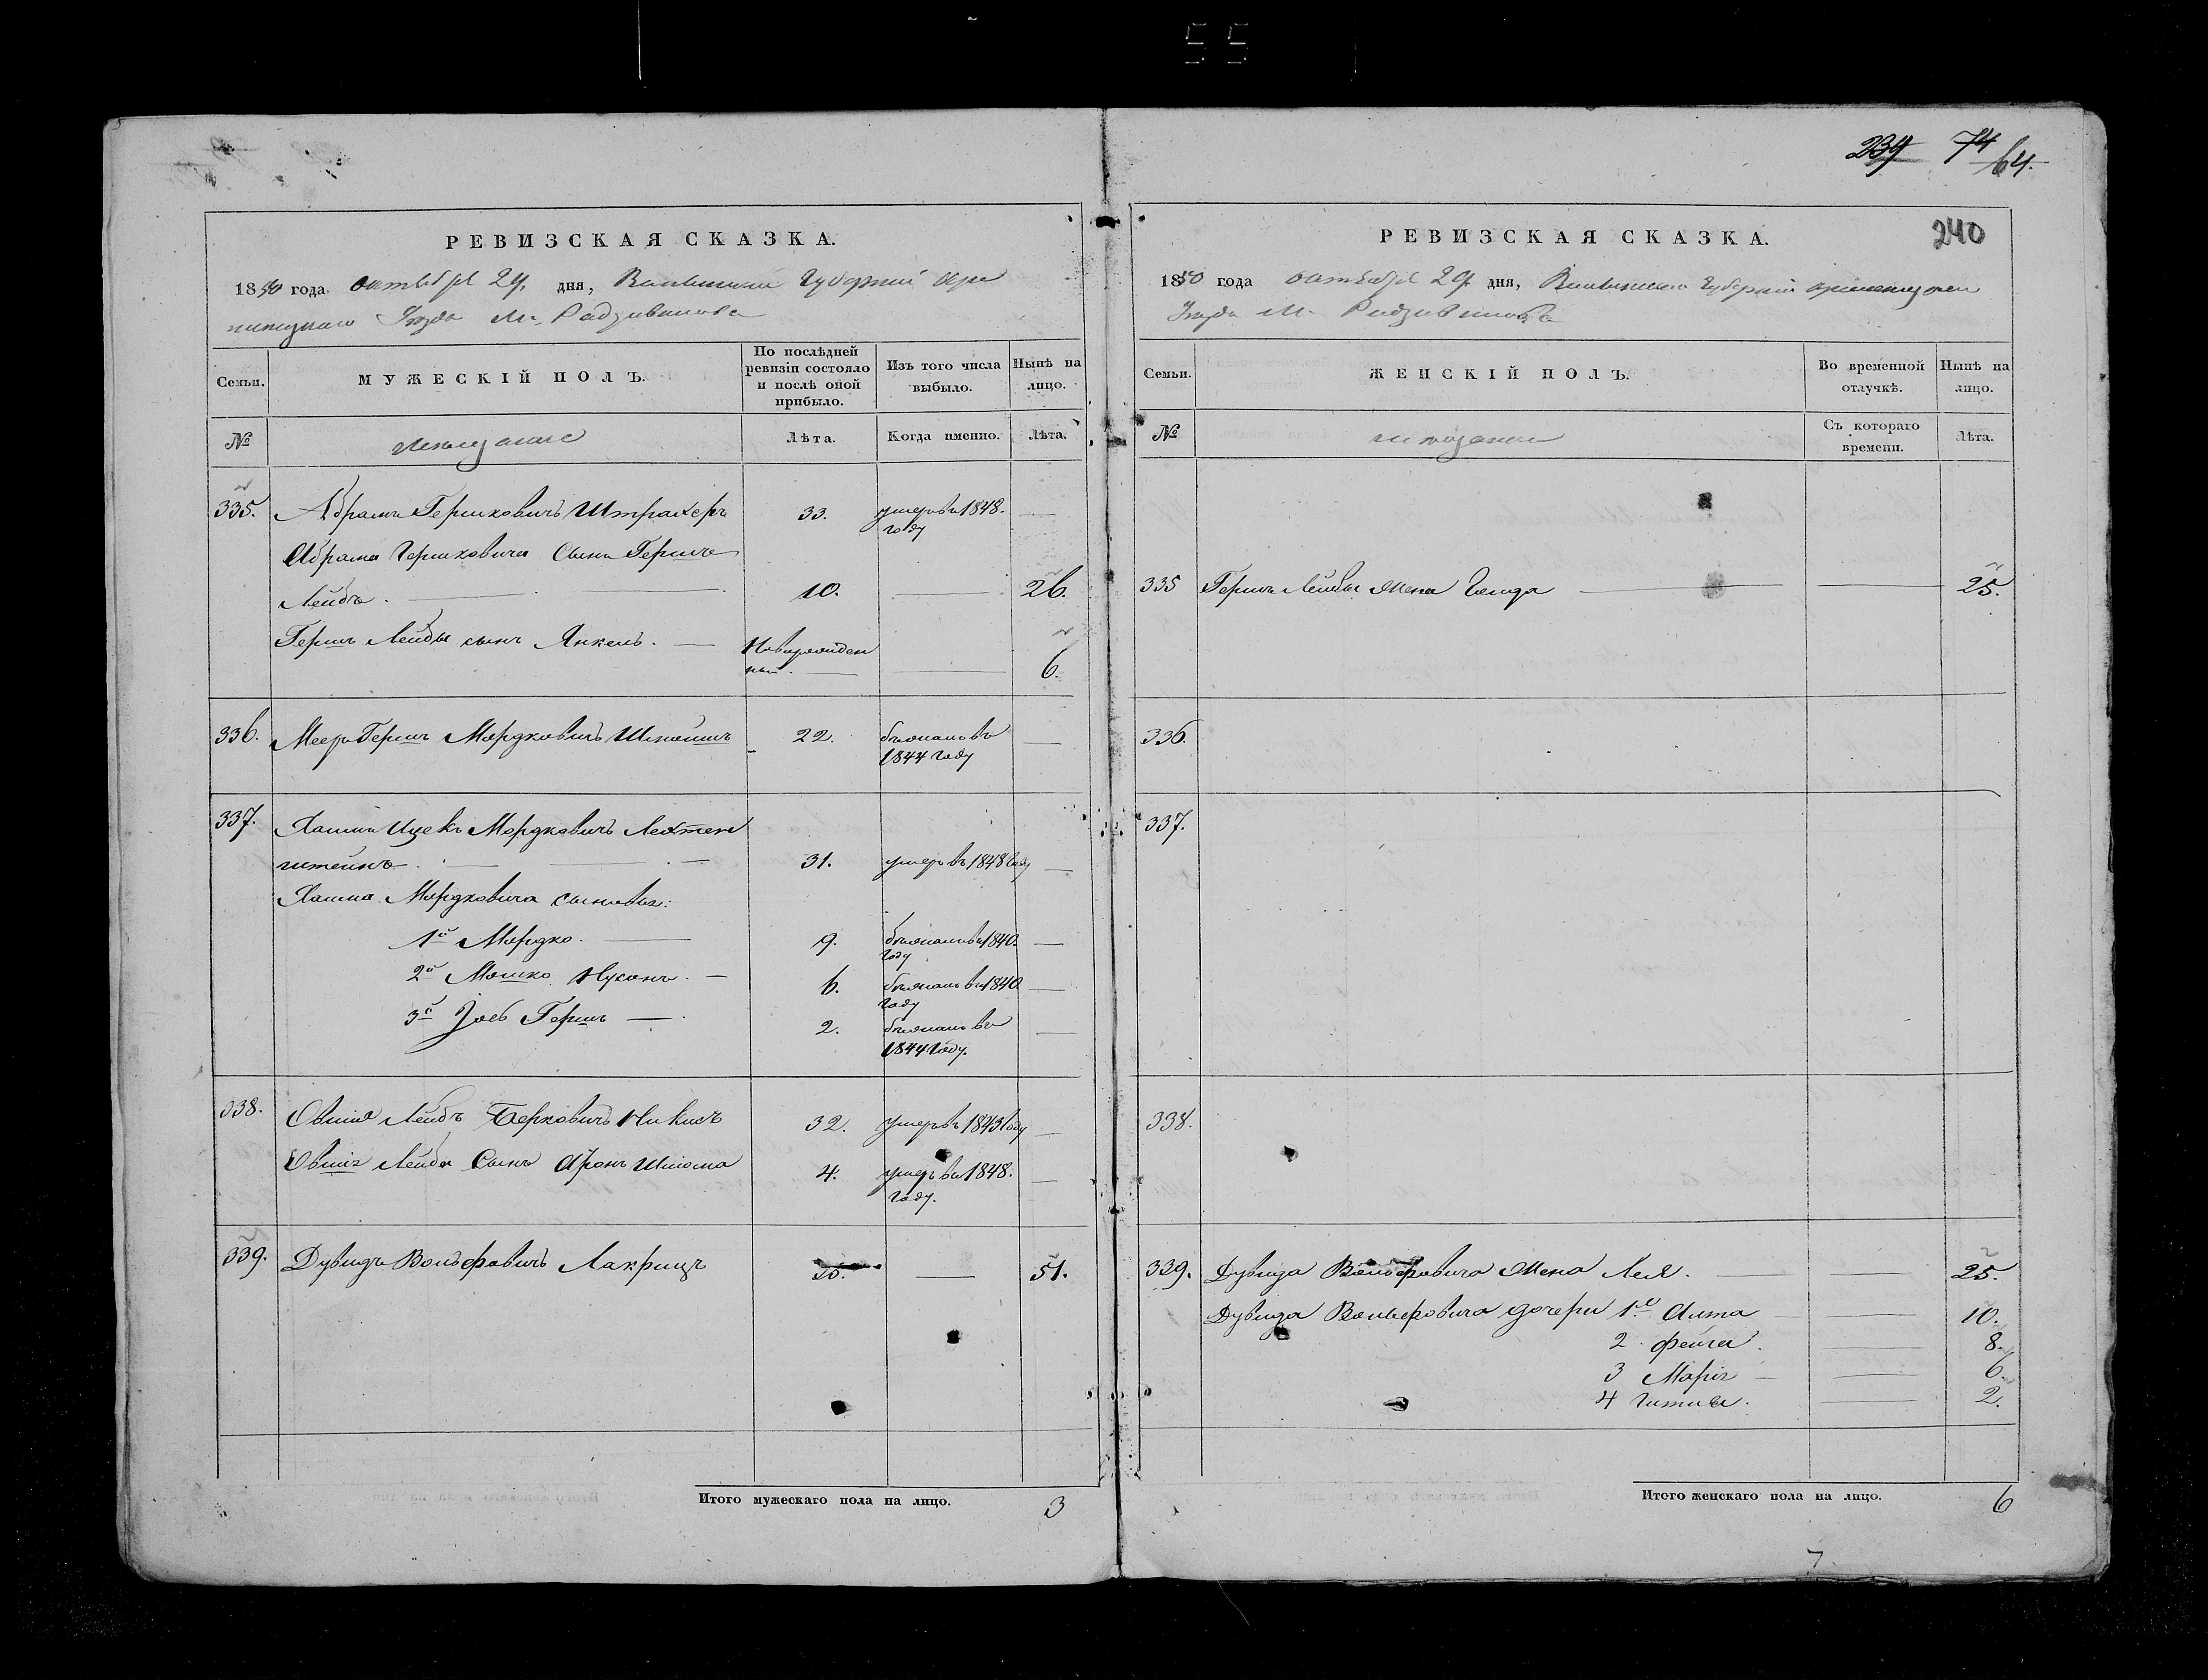 55
239 74 64.
РЕВИЗСКАЯ СКАЗКА.
1850 года октября 29, дня, Волынской Губерніи Кре
менецкаго Уѣзда М. Радзивилова
Семьи.
МУЖЕСКІЙ ПОЛЪ.
По послѣдней ревизіи состояло и послѣ оной прибыло.
Изъ того числа выбыло.
Нынѣ на лицо.
№
мещане
Лѣта.
Когда именно.
Лѣта.
335. Абрамъ Гершковичъ Штрахеръ 33. умеръ въ 1848. году —
Абрама Гершковича Сынъ Гершъ
Лейбъ. — 10. — 26.
Гершъ Лейбы сынъ Янкель. — Новорожден
ный. — — 6.
336. Мееръ Гершъ Мордковичъ 22. въ —
1844 году
337. Хаимъ Ицекъ Мордковичъ Лехтен
штейнъ. — 31. умеръ въ 1848 году —
Хаима Мордковича сыновья:
1й Мордко. — 9. въ 1840. году —
2й Мошко Нусонъ. — 6. въ 1840 году —
3й Гершъ — 2. въ —
1844 году.
338. Овшія Лейбъ Берковичъ 32. умеръ въ 1843 году —
Овшія Лейба Сынъ Аронъ Шлиома 4. умеръ въ 1848. году. —
339. Дувидъ Вольфовичъ Лакрицъ — 51.
Итого мужескаго пола на лицо. 3
РЕВИЗСКАЯ СКАЗКА.
240
1850 года октября 29 дня, Волынской Губерніи Кременецкаго
Уѣзда М. Радзивилова
Семьи.
ЖЕНСКІЙ ПОЛЪ.
Во временной отлучкѣ.
Нынѣ на лицо.
№
мещане
Съ котораго времени.
Лѣта.
335 Гершъ Лейбы Жена — — 25.
336.
337.
338.
339. Дувида Вольфовича Жена Лея. — — 25.
Дувида Вольфовича дочери 1я — — 10.
2 Фейга. — 8.
3 Марія — — 6.
4 Гитля. — 2.
Итого женскаго пола на лицо. 6
7